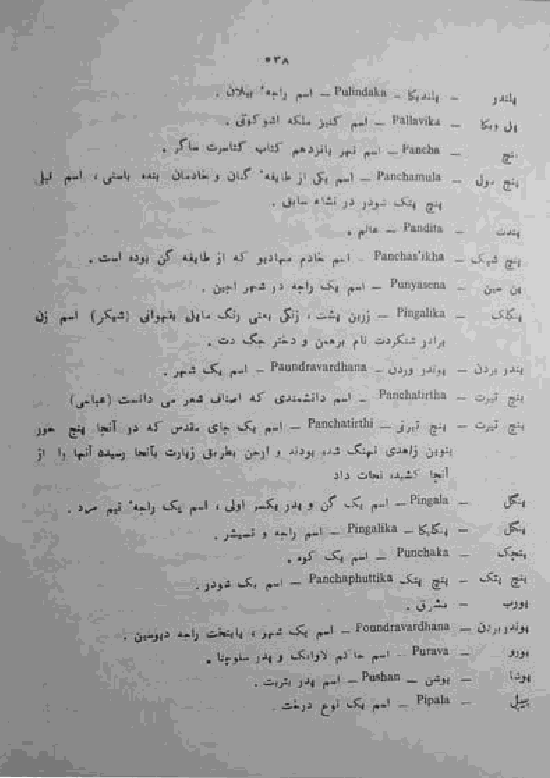 ۵۳۸
پلندو — پلندیکا — Pulindaka — اسم راجه' بیلان .
پل ویکا — Pallavika — اسم کنیز ملکه اشوکوتی .
پنچ — Pancha — اسم نهر یازدهم کتاب کتاسرت ساگر .
پنچ مول — Panchamula — اسم یکی از طایفه' گنان و خادمان بنده باستی ، اسم قبلی
پنچ پتک شودر در نشاه سابق .
پندت — Pandita — عالم .
پنچ شیکه — Panchas'ikha — اسم خادم مهادیو که از طایفه گن بوده است .
پن سین — Punyasena — اسم یک راجه در شهر اجین .
پنگلک — Pingalika — زرین پشت ، رنگی یعنی رنگ مایل بقهوائی (شیکر) اسم زن
برادر شنکردت نام برهمن و دختر جگ دت .
پندوبردن — پوندو وردن — Paundravardhana — اسم یک شهر .
پنچ تیرت — Panchatirtha — اسم دانشمندی که اصناف شعر می دانست (عباسی)
پنچ تیرت — پنچ تیرتی — Panchatirthi — اسم یک جای مقدس که دو آنجا پنچ حور
بنوبن زاهدی نهنگ شده بودند و ارجن بطریق زیارت بآنجا رسیده آنها را از
آنجا کشیده نجات داد
پنگل — Pingala — اسم یک گن و پدر یکسر اولی ، اسم یک راجه' تیم مرد .
پنگل — پنگلیکا — Pingalika — اسم راجه و تسیشر .
پنچک — Punchaka — اسم یک کوه .
پنچ پتک — پنچ پتک Panchaphuttika — اسم یک شودر .
پورب — مشرق .
پوندوبردن — Poundravardhana — اسم یک شهر ، پایتخت راجه دیوسین .
پورو — Purava — اسم حاکم لاوانک و پدر سلوچنا .
پوندا — پوشن — Pushan — اسم پدر بثریت .
پیپل — Pipala — اسم یک نوع درخت .